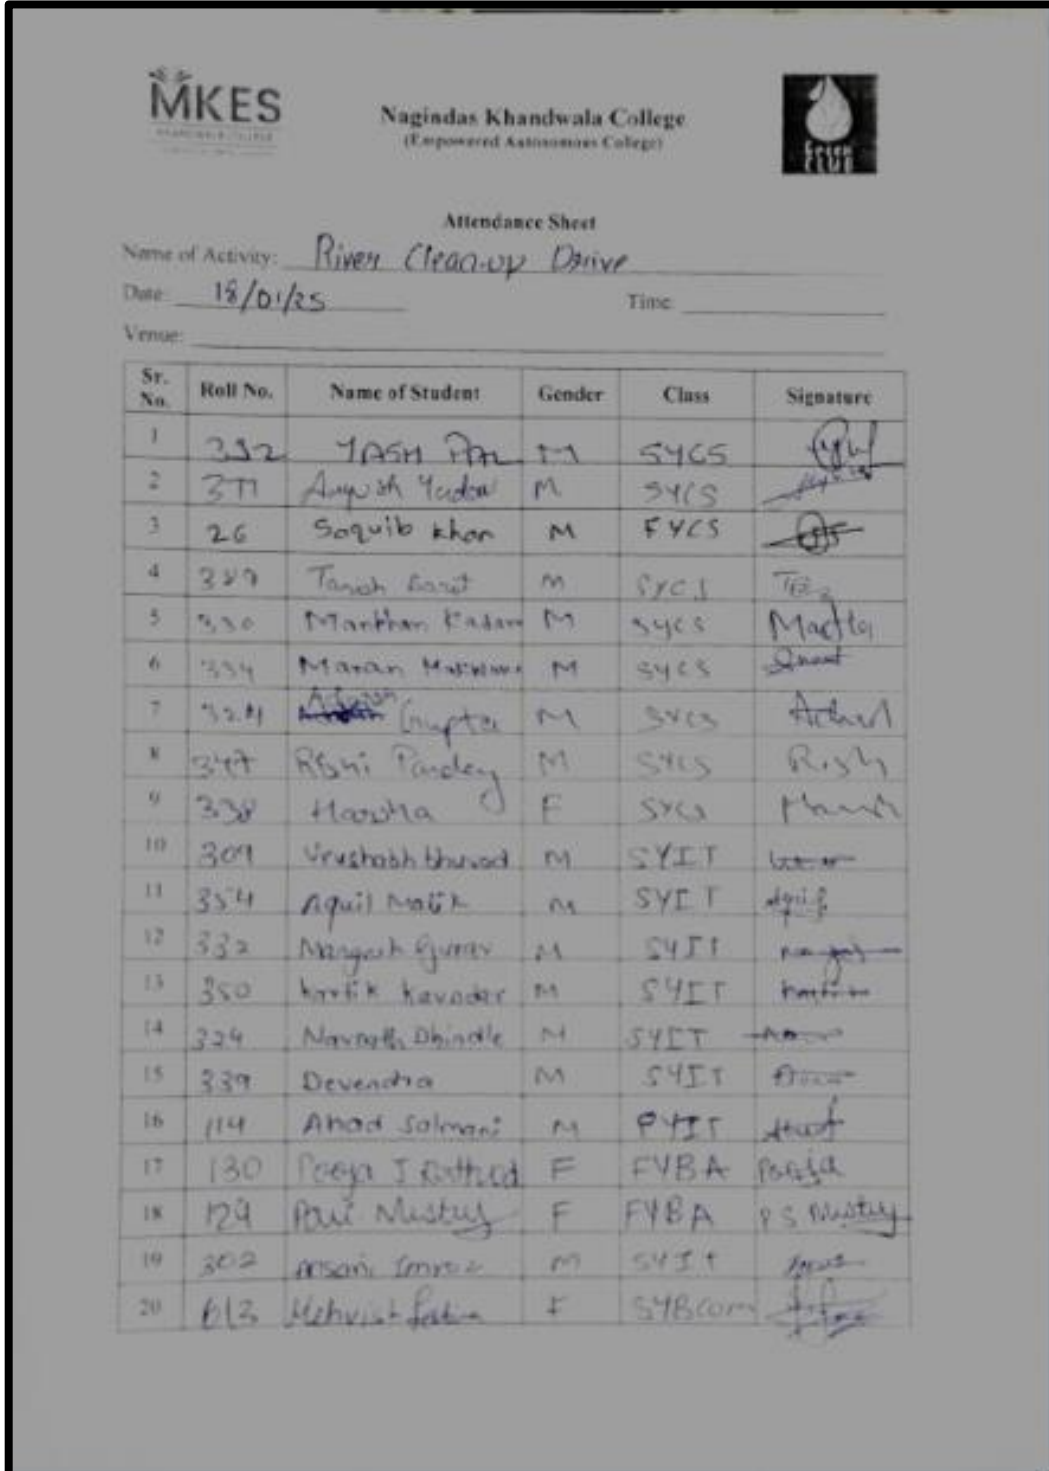 MKES
KHANDWALA COLLEGE
Nagindas Khandwala College
(Empowered Autonomous College)
Attendance Sheet
Name of Activity: River Clean-up Drive
Date: 18/01/25 Time:
Venue:
Sr. No. Roll No. Name of Student Gender Class Signature
1 392 YASH PAL M SYCS
2 377 Yadav M SYCS
3 26 Saquib Khan M FYCS
4 M SYCS
5 330 Manthan Kadam M SYCS
6 334 M SYCS
7 Adarsh Gupta M SYCS
8 347 Rishi Pandey M SYCS Rishi
9 338 Harsha F SYCS
10 309 Vrushabh bhuvad M SYIT
11 354 Aquil Malik M SYIT
12 332 Mangesh Gurav M SYIT
13 350 Kartik Kavader M SYIT
14 324 Navnath Dhindle M SYIT
15 339 Devendra M SYIT
16 114 Ahad Salmani M FYIT
17 130 Pooja J Rathod F FYBA Pooja
18 129 Pari Mistry F FYBA P S Mistry
19 302 Ansari Imroz M SYIT
20 613 Mehvish Fatima F SYBCom